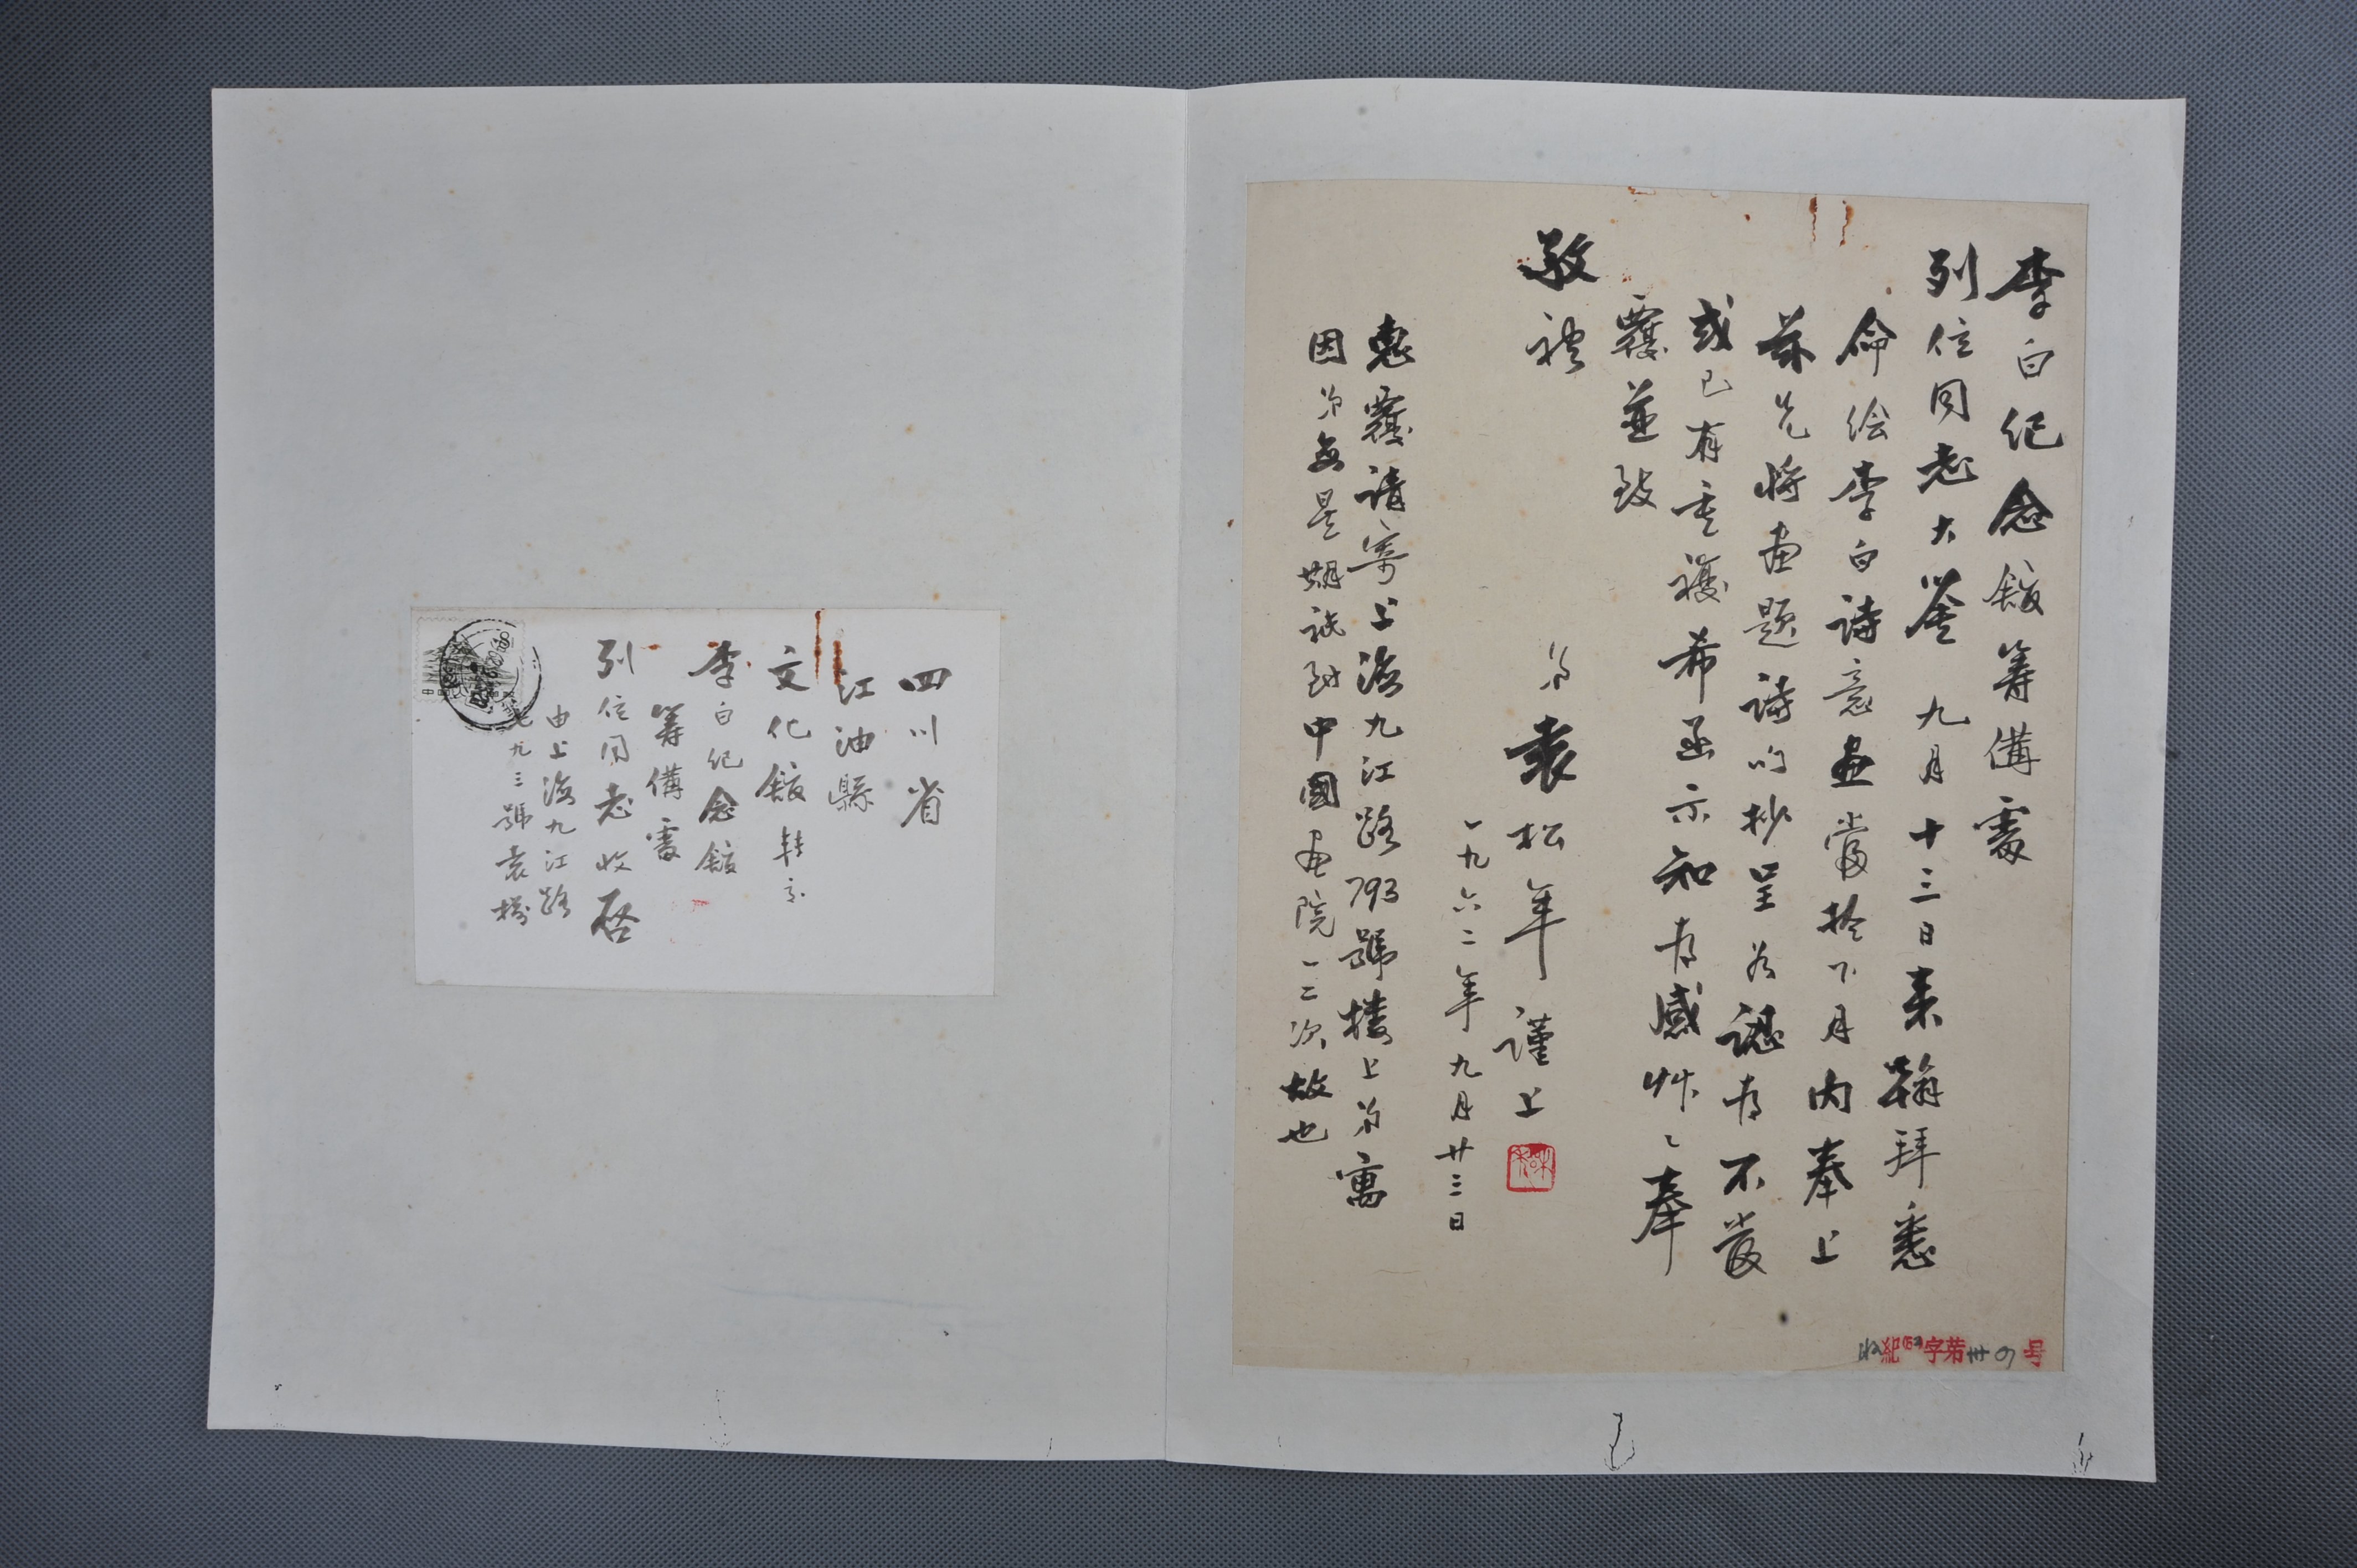 李白纪念舘筹備處
列位同志大鉴 九月十三日来翰拜悉
命绘李白诗意画當於下月内奉上
兹先将画题诗句抄呈为認有不当
或已有重複希函示知为感艸〻奉
覆並致
敬礼
弟袁松年謹上
一九六二年九月廿三日
惠覆请寄上海九江路793號楼上弟寓
因弟每星期祗到中國画院一二次故也
收紀字第卅四号
四川省
江油縣
文化舘转交
李白纪念舘
筹備處
列位同志收启
由上海九江路
七九三號袁